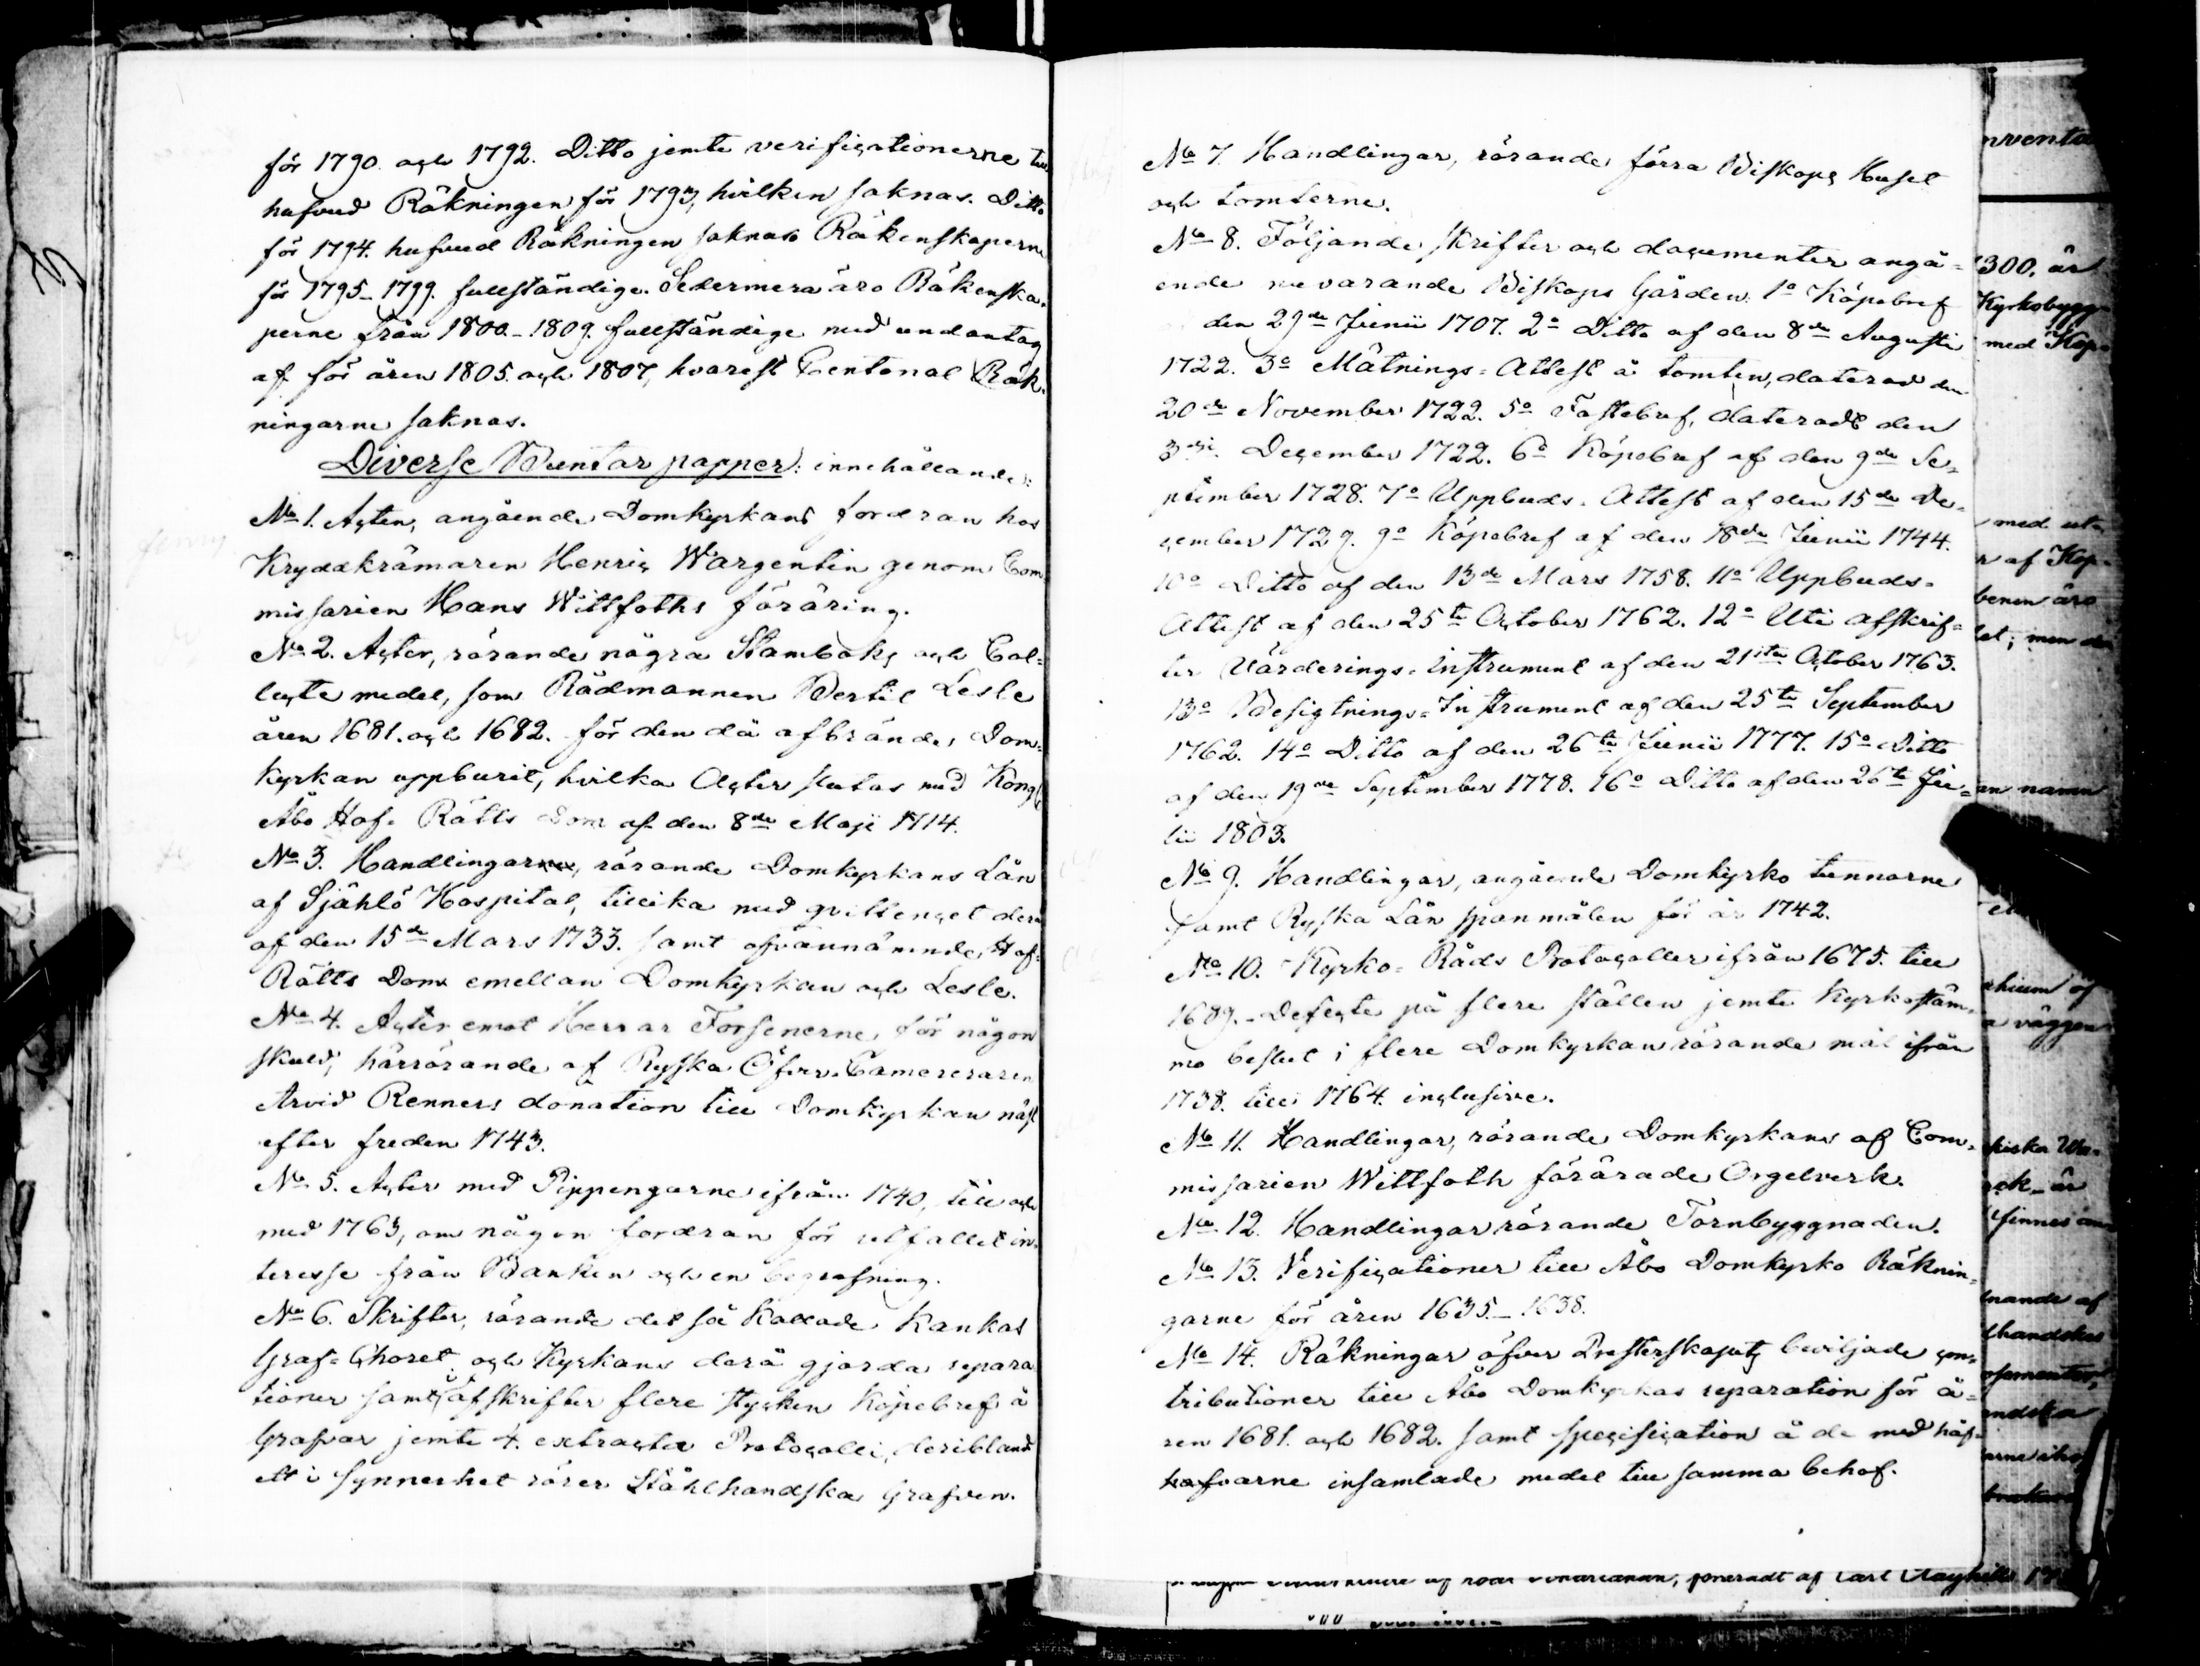 för 1790. och 1792. Ditto jemte verificationerne till
hufvud Räkningen för 1793, hvilken saknas. Ditto
för 1794. hufvud Räkningen saknas Räkenskaperne
för 1795–1799. fullständige. Sedermera äro Räkenska-
perne från 1800–1809. fullständige med undantag
af för åren 1805. och 1807, hvarest Pentonal Räk-
ningarne saknas.
Diverse Buntar papper: innehållande:
No 1. Acten, angående Domkyrkans fordran hos
Kryddkrämaren Henric Wargentin genom Com-
missarien Hans Wittfoths föräring.
No 2. Acter, rörande några Stamboks och Col-
lecte medel, som Rådmannen Bertil Lesle
åren 1681. och 1682. för den då afbrände, Dom-
kyrkan uppburit, hvilka Acter slutas med Kongl
Åbo Hof Rätts Dom af den 8de Maji 1714.
No 3. Handlingar, rörande Domkyrkans Lån
af Sjählö Hospital, tillika med qvittencet derå
af den 15de Mars 1733. samt ofvannämnde Hof-
Rätts Dom emellan Domkyrkan och Lesle.
No 4. Acter emot Herrar Forsenerne, för någon
skuld, härrörande af Ryska Öfver Camereraren
Arvid Renners donation till Domkyrkan näst
efter freden 1743.
No 5. Acter med Pippengarne ifrån 1740, till och
med 1763, om någon fordran för utfallet in-
teresse från Banken och en begrafning.
No 6. Skrifter, rörande det så kallade Kankas
Graf-Choret och Kyrkans derå gjorda repara
tioner samt afskrifter flere stycken Köpebref å
Grafvar jemte 4. extracter Protocolli, deribland
ett i synnerhet rörer Stålhandska Grafven.
No 7. Handlingar, rörande förra Biskops Huset
och tomterne.
No 8. Följande skrifter och documenter angå-
ende nuvarande Biskops Gården. 1o Köpebref
den 29de Junii 1707. 2o Ditto af den 8de Augusti
1722. 3o Mätnings-Attest å tomten, daterad den
20de November 1722. 5o Fastebref, dateradt den
3die December 1722. 6o Köpebref af den 9de Se-
ptember 1728. 7o Uppbuds-Attest af den 15de De-
cember 1729. 9o Köpebref af den 18de Junii 1744.
10o Ditto af den 13de Mars 1758. 11o Uppbuds-
Attest af den 25te October 1762. 12o Uti afskrif-
ter Värderings-Instrument af den 21sta October 1763.
13o Besigtnings-Instrument af den 25te September
1762. 14o Ditto af den 26te Junii 1777. 15o Ditto
af den 19de September 1778. 16o Ditto af den 26te Ju-
lii 1803.
No 9. Handlingar, angående Domkyrko tunnorne
samt Ryska Lån spanmålen för år 1742.
No 10. Kyrko-Råds Protocoller ifrån 1675. till
1689. Defecte på flere ställen jemte Kyrkostäm-
mo beslut i flere Domkyrkan rörande mål ifrån
1738. till 1764. inclusive.
No 11. Handlingar, rörande Domkyrkans af Com-
missarien Wittfoth förärade Orgelverk.
No 12. Handlingar rörande Tornbyggnaden.
No 13. Verificationer till Åbo Domkyrko Räknin-
garne för åren 1635–1638.
No 14. Räkningar öfver Presterskapets beviljade con-
tributioner till Åbo Domkyrkas reparation för å-
ren 1681. och 1682. samt specification å de med håf-
hafvarne insamlade medel till samma behof.
nventa
1300. är
Kyrkobygg
med Kop
med ut
r af Kop
benen äro
let; men de
an namn
chium of
a väggen
kiska
rok är
finnes
nande af
lhandskes